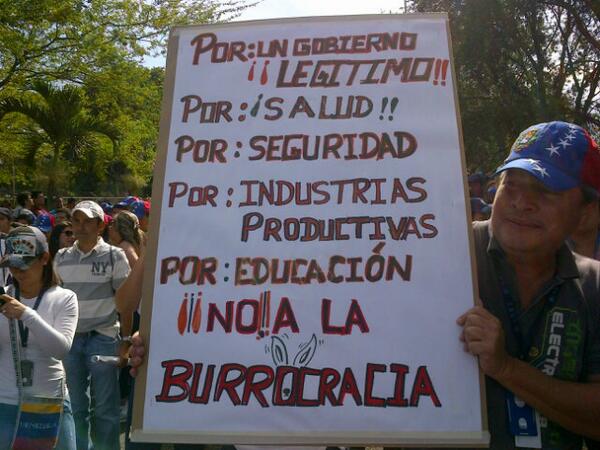 POR: UN GOBIERNO
¡¡ LEGITIMO!!
POR: ¡SALUD!!
POR: SEGURIDAD
POR: INDUSTRIAS
PRODUCTIVAS
POR: EDUCACIÓN
¡¡¡NO!! A LA
BURROCRACIA
NY
VENEZUELA